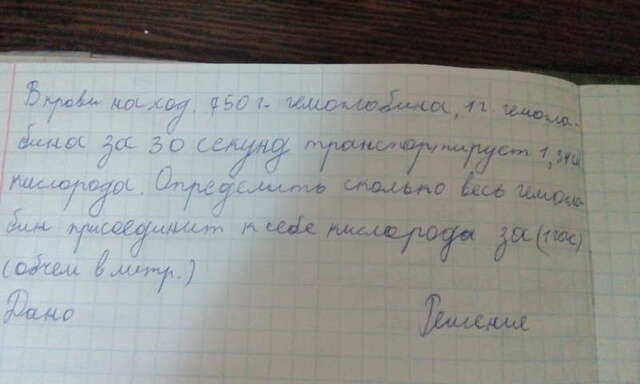 В крови наход. 750 г. гемоглобина, 1 г. гемогло-
бина за 30 секунд транспортирует 1,34см
кислорода. Определить сколько весь гемогло
бин присоединит к себе кислорода за (1 час)
(объем в метр.)
Дано Решение